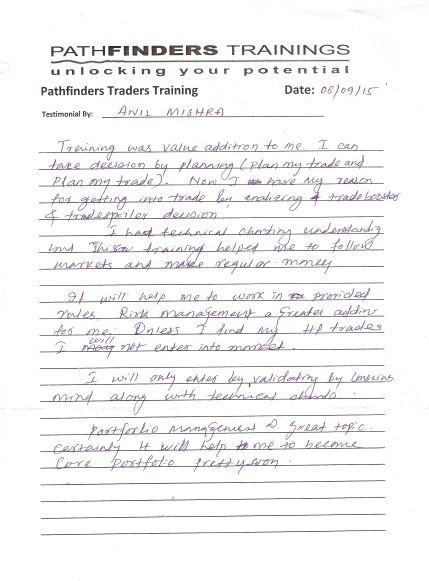 PATHFINDERS TRAININGS
unlocking your potential
Pathfinders Traders Training Date: 06/09/15
Testimonial By: ANIL MISHRA
Training was value addition to me. I can
take decision by planning (Plan my trade and
Plan my trade). Now I have my reason
for getting into trade by analizing & trade booster
& trade spoiler decision
I had technical charting understanding
but This training helped me to follow
markets and make regular money
It will help me to work in provided
rules. Risk management a Greater adding
for me. Unless I find my HP trades
I will not enter into market.
I will only enter by validating by
mind along with technical
Portfolio Management Great topic.
Certainly it will help me to become
Core Portfolio pretty soon.